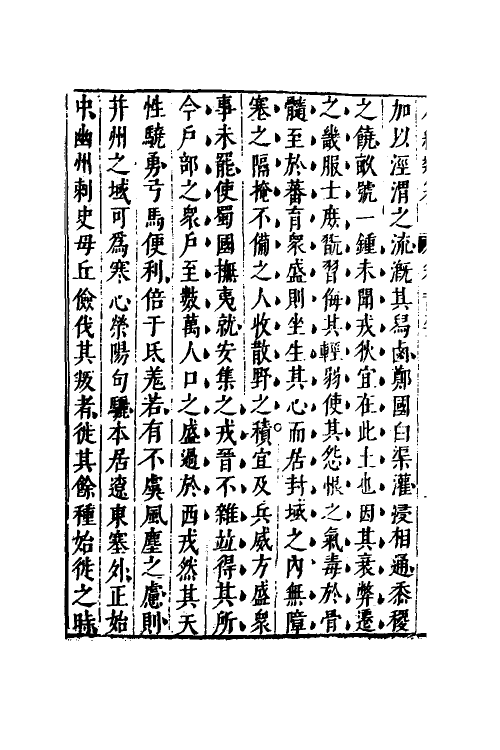 加以涇渭之流漑其舄鹵鄭國白渠灌浸相通黍稷
之饒畝號一鍾未聞戎狄宜在此土也因其衰弊遷
之畿服士庶翫習侮其輕弱使其怨恨之氣毒於骨
髓至於蕃育衆盛則坐生其心而居封域之內無障
塞之隔掩不備之人收散野之積宜及兵威方盛衆
事未罷使蜀國撫夷就安集之戎晉不雜竝得其所
今戶部之衆戶至數萬人口之盛過於西戎然其天
性驍勇弓馬便利倍于氐羗若有不虞風塵之慮則
并州之域可爲寒心滎陽句驪本居遼東塞外正始
中幽州刺史毋丘儉伐其叛者徙其餘種始徙之時